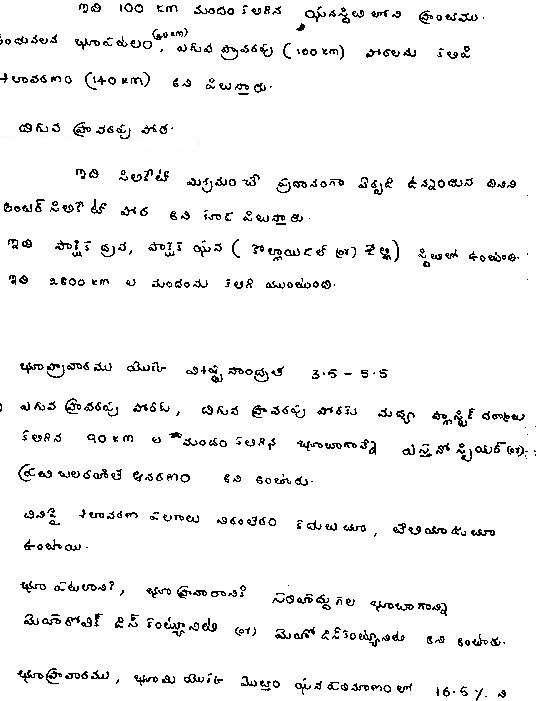 ఇది 100 km మందం కలిగిన ఘనస్థితిలోని ప్రాంతము.
అందువలన భూపటలం, (40 km) ఎగువ ప్రావరపు (100 km) పొరలను కలిపి
శిలావరణం (140 km) అని పిలుస్తారు.
దిగువ ప్రావరపు పొర.
ఇది సిలికేట్ మిశ్రమం చే ప్రధానంగా ఏర్పడి ఉన్నందున దీనిని
ఇంటర్ సిలికేట్ పొర అని కూడా పిలుస్తారు.
ఇది పాక్షిక ద్రవ, పాక్షిక ఘన ( కొల్లాయిడల్ (or) జెల్లీ ) స్థితిలో ఉంటుంది.
ఇది 2800 km ల మందంను కలిగి యుంటుంది.
భూప్రావారము యొక్క విశిష్టసాంద్రత 3.5 - 5.5
ఎగువ ప్రావరపు పొరకు, దిగువ ప్రావరపు పొరకు మధ్య ప్లాస్టిక్ ధర్మాలు
కలిగిన 90 km ల మందం కలిగిన భూభాగాన్ని ఎస్తనో స్పియర్ (or)
దుర్బలావరణం అని అంటారు.
దీనిపై శిలావరణ పలకాలు నిరంతరం కదులుచూ, తేలియాడుచూ
ఉంటాయి.
భూ పటలానికి, భూ ప్రావారానికి సరిహద్దుగల భూభాగాన్ని
మొహరోవిక్ డిస్ కంట్యూనిటీ (or) మొహో డిస్ కంట్యూనిటీ అని అంటారు.
భూప్రావారము, భూమి యొక్క మొత్తం ఘన పరిమాణంలో 16.5 %. ని